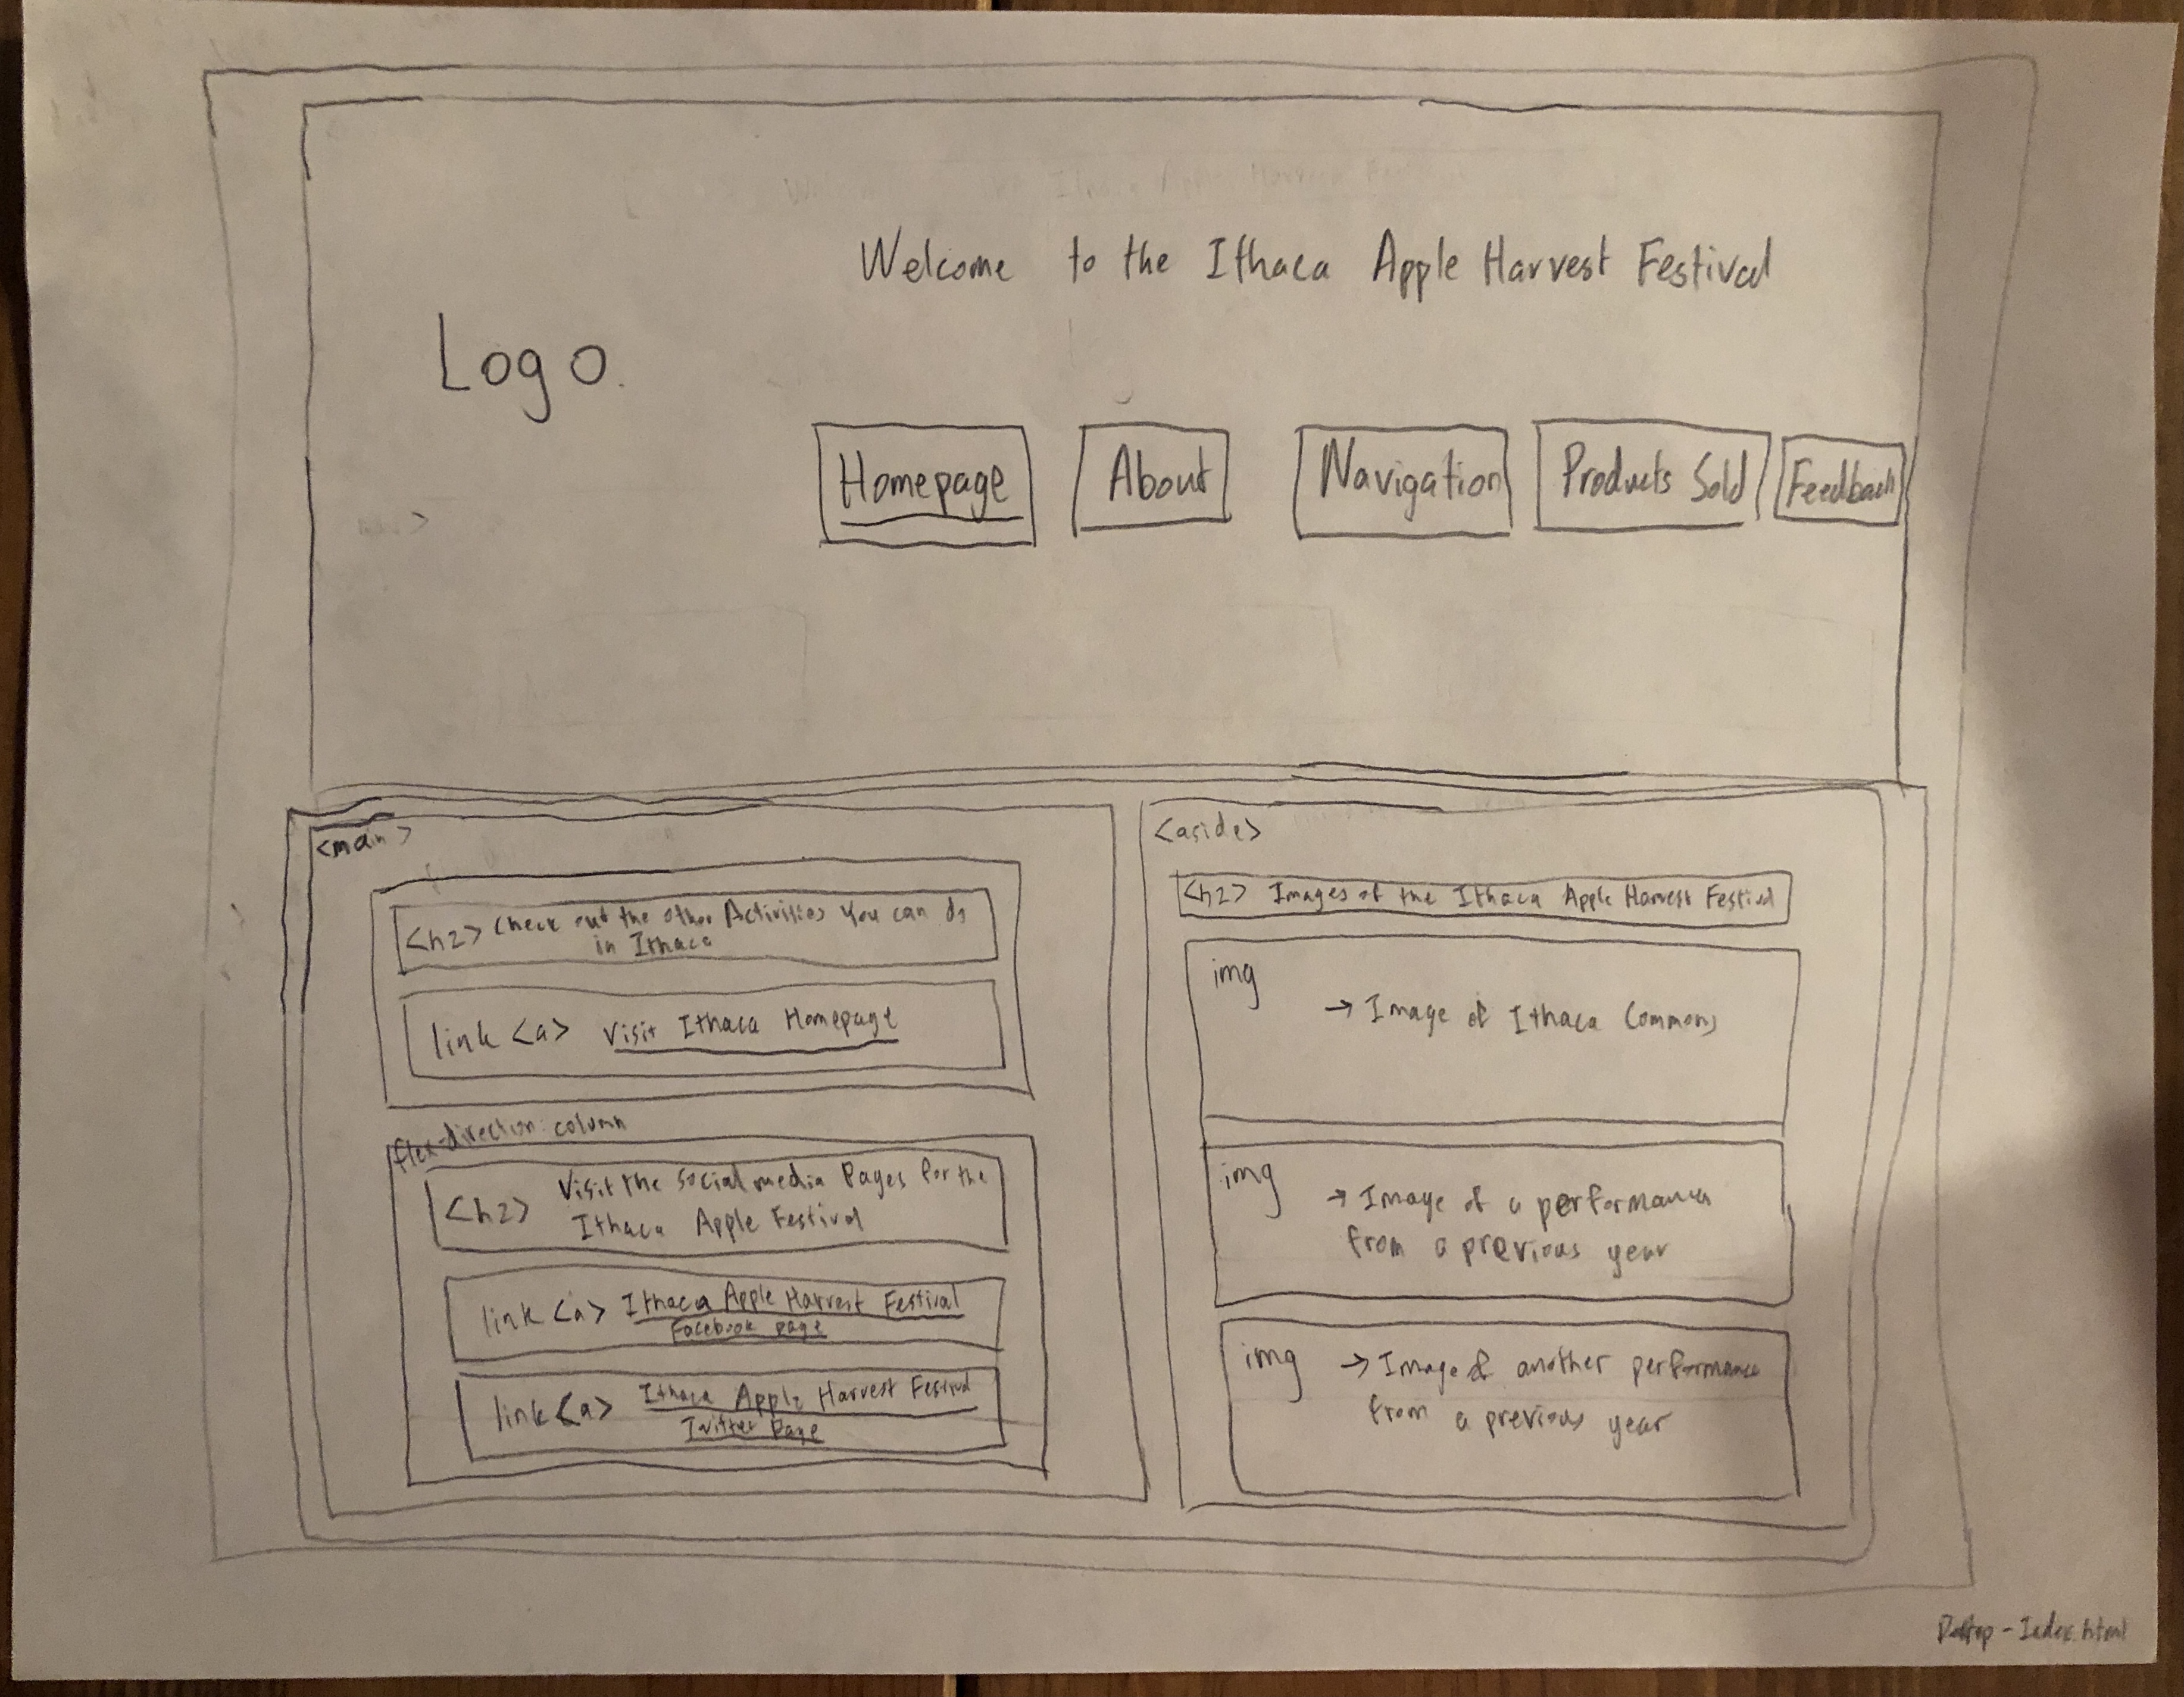 Welcome to the Ithaca Apple Harvest Festival
Logo
Homepage
About
Navigation
Products Sold
Feedback
<main>
<h2> Check out the other Activities You can do
in Ithaca
link <a> Visit Ithaca Homepage
flex-direction: column
<h2> Visit the social media Pages for the
Ithaca Apple Festival
link <a> Ithaca Apple Harvest Festival
Facebook page
link <a> Ithaca Apple Harvest Festival
Twitter Page
<aside>
<h2> Images of the Ithaca Apple Harvest Festival
img
→ Image of Ithaca Commons
img
→ Image of a performance
from a previous year
img → Image of another performance
from a previous year
Desktop - Index.html